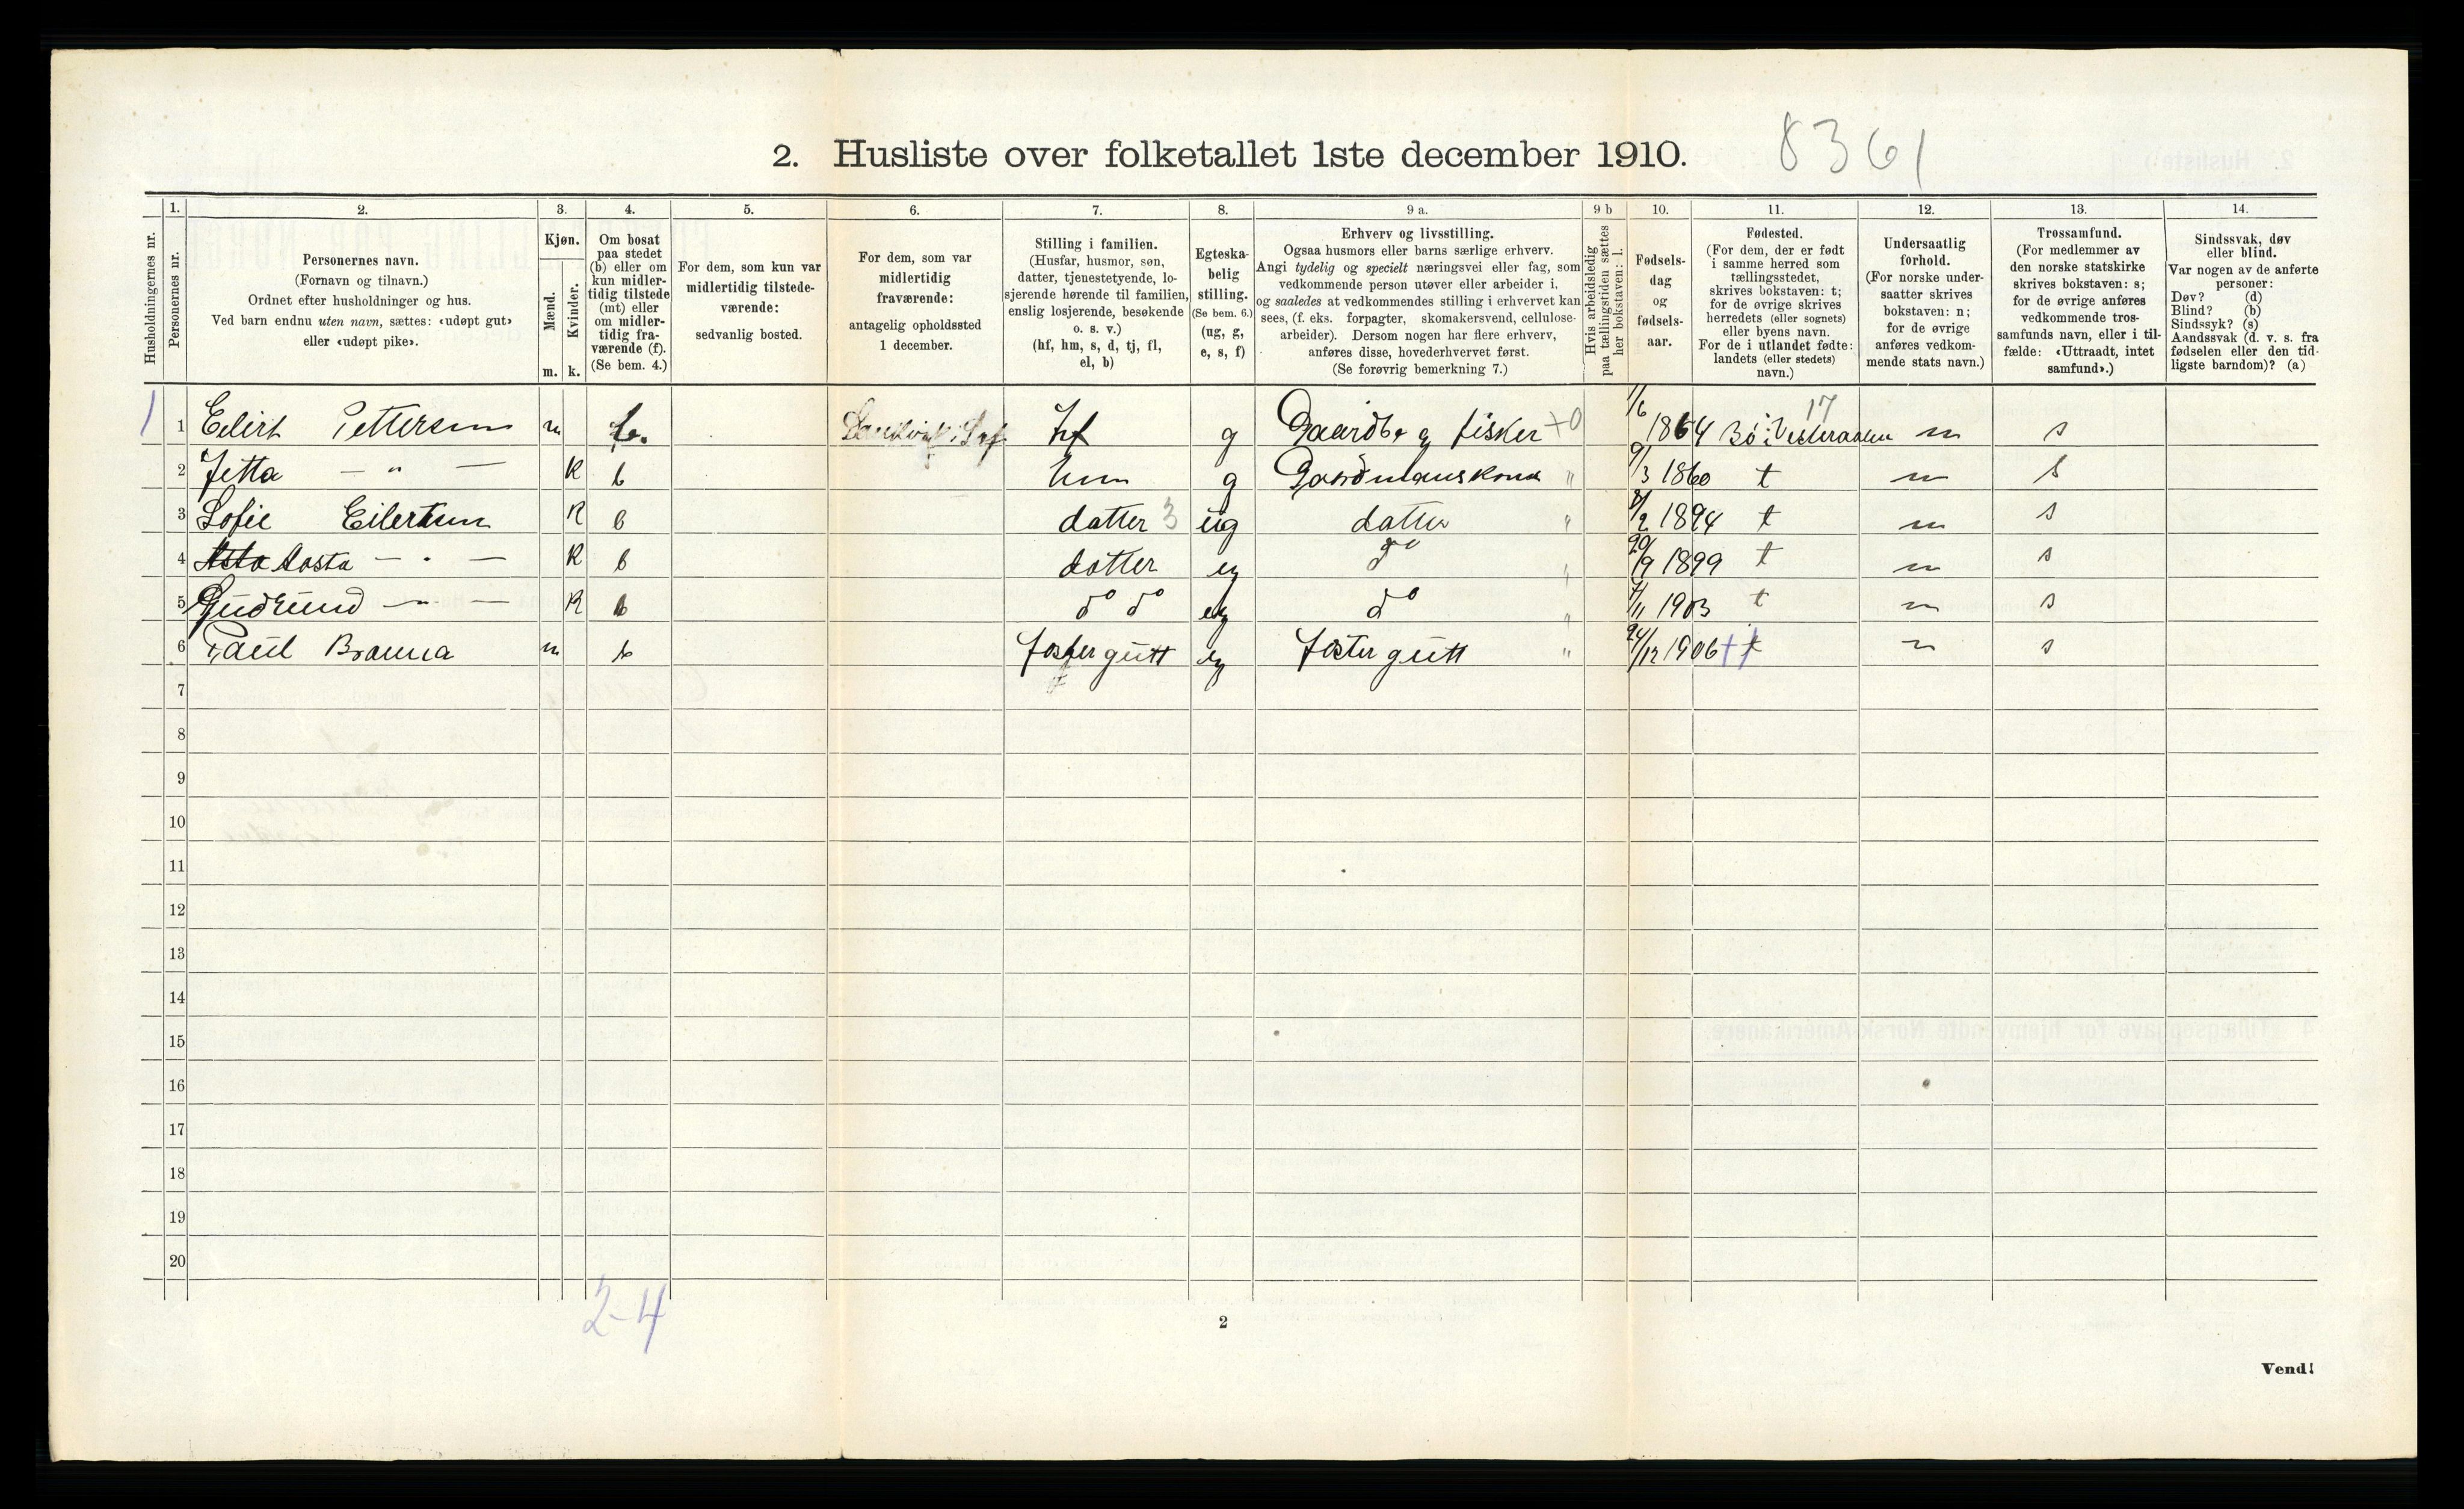 2. Husliste over folketallet 1ste december 1910. 8361
Husholdningernes nr.
1.
Personernes nr.
2.
Personernes navn.
(Fornavn og tilnavn.)
Ordnet efter husholdninger og hus.
Ved barn endnu uten navn, sættes: «udøpt gut»
eller «udøpt pike».
3.
Kjøn.
Mænd.
Kvinder.
m. k.
4.
Om bosat
paa stedet
(b) eller om
kun midler-
tidig tilstede
(mt) eller
om midler-
tidig fra-
værende (f).
(Se bem. 4.)
5.
For dem, som kun var
midlertidig tilstede-
værende:
sedvanlig bosted.
6.
For dem, som var
midlertidig
fraværende:
antagelig opholdssted
1 december.
7.
Stilling i familien.
(Husfar, husmor, søn,
datter, tjenestetyende, lo-
sjerende hørende til familien,
enslig losjerende, besøkende
o. s. v.)
(hf, hm, s, d, tj, fl,
el, b)
8.
Egteska-
belig
stilling.
(Se bem. 6.)
(ug, g,
e, s, f)
9 a.
Erhverv og livsstilling.
Ogsaa husmors eller barns særlige erhverv.
Angi tydelig og specielt næringsvei eller fag, som
vedkommende person utøver eller arbeider i,
og saaledes at vedkommendes stilling i erhvervet kan
sees, (f. eks. forpagter, skomakersvend, cellulose-
arbeider). Dersom nogen har flere erhverv,
anføres disse, hovederhvervet først.
(Se forøvrig bemerkning 7.)
9 b
Hvis arbeidsledig
paa tællingstiden sættes
her bokstaven: l.
10.
Fødsels-
dag
og
fødsels-
aar.
11.
Fødested.
(For dem, der er født
i samme herred som
tællingsstedet,
skrives bokstaven: t;
for de øvrige skrives
herredets (eller sognets)
eller byens navn.
For de i utlandet fødte:
landets (eller stedets)
navn.)
12.
Undersaatlig
forhold.
(For norske under-
saatter skrives
bokstaven: n;
for de øvrige
anføres vedkom-
mende stats navn.)
13.
Trossamfund.
(For medlemmer av
den norske statskirke
skrives bokstaven: s;
for de øvrige anføres
vedkommende tros-
samfunds navn, eller i til-
fælde: «Uttraadt, intet
samfund».)
14.
Sindssvak, døv
eller blind.
Var nogen av de anførte
personer:
Døv? (d)
Blind? (b)
Sindssyk? (s)
Aandssvak (d. v. s. fra
fødselen eller den tid-
ligste barndom)? (a)
17
1 1 Eilert Pettersen m hf g Gaardbr og fisker +0 1/6 1864 Bø i Vesteraalen n s
2 Jetta - " - K b hm g Gaardmanskona " 9/3 1860 t n s
3 Sofie Eilertsen K b datter 3 ug datter " 8/2 1894 t n s
4 Asta Aasta - " - K b datter ug do " 20/9 1899 t n s
5 Gudrund - " - K b do do ug do " 7/11 1903 t n s
6 Paul Brauna m b foster gutt ug foster gutt " 24/12 1906 t n s
7
8
9
10
11
12
13
14
15
16
17
18
19
20
2-4
2
Vend!